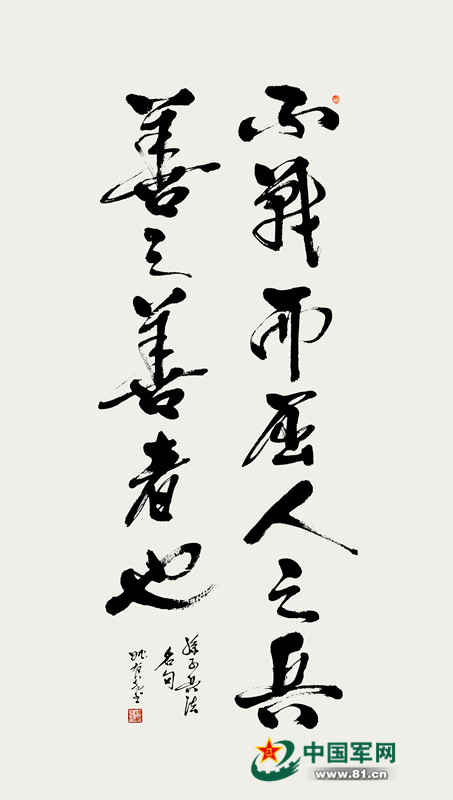 不战而屈人之兵
善之善者也
孙子兵法
名句
中国军网
www.81.cn